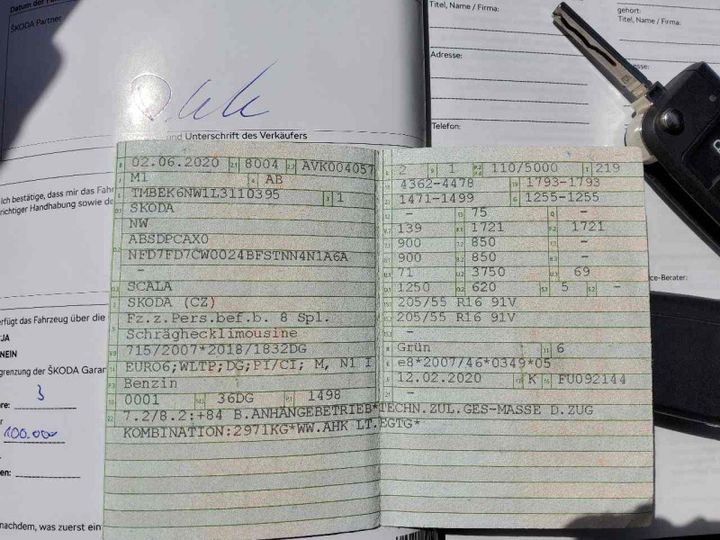 Datum der
ŠKODA Partner
und Unterschrift des Verkäufers
Ich bestätige, dass mir das Fahr
richtiger Handhabung sowie de
erfügt das Fahrzeug über die
JA
NEIN
grenzung der ŠKODA Garan
re:
3
100.000
en:
nachdem, was zuerst ein
Titel, Name / Firma:
Adresse:
Telefon:
gehört:
Titel, Name / Firma:
ce-Berater:
02.06.2020 8004 AVK004057
M1 AB
TMBEK6NW1L3110395 1
SKODA
NW
ABSDPCAX0
NFD7FD7CW0024BFSTNN4N1A6A
-
SCALA
SKODA (CZ)
Fz.z.Pers.bef.b. 8 Spl.
Schräghecklimousine
715/2007*2018/1832DG
EURO6;WLTP;DG;PI/CI; M, N1 I
Benzin
0001 36DG 1498
7.2/8.2:+84 B.ANHÄNGEBETRIEB*TECHN.ZUL.GES-MASSE D.ZUG
KOMBINATION:2971KG*WW.AHK LT.EGTG*
2 1 110/5000 219
4362-4478 1793-1793
1471-1499 1255-1255
- 75 -
139 1721 1721
900 850 -
900 850 -
71 3750 69
1250 620 5 -
205/55 R16 91V
205/55 R16 91V
-
Grün 6
e8*2007/46*0349*05
12.02.2020 K FU092144